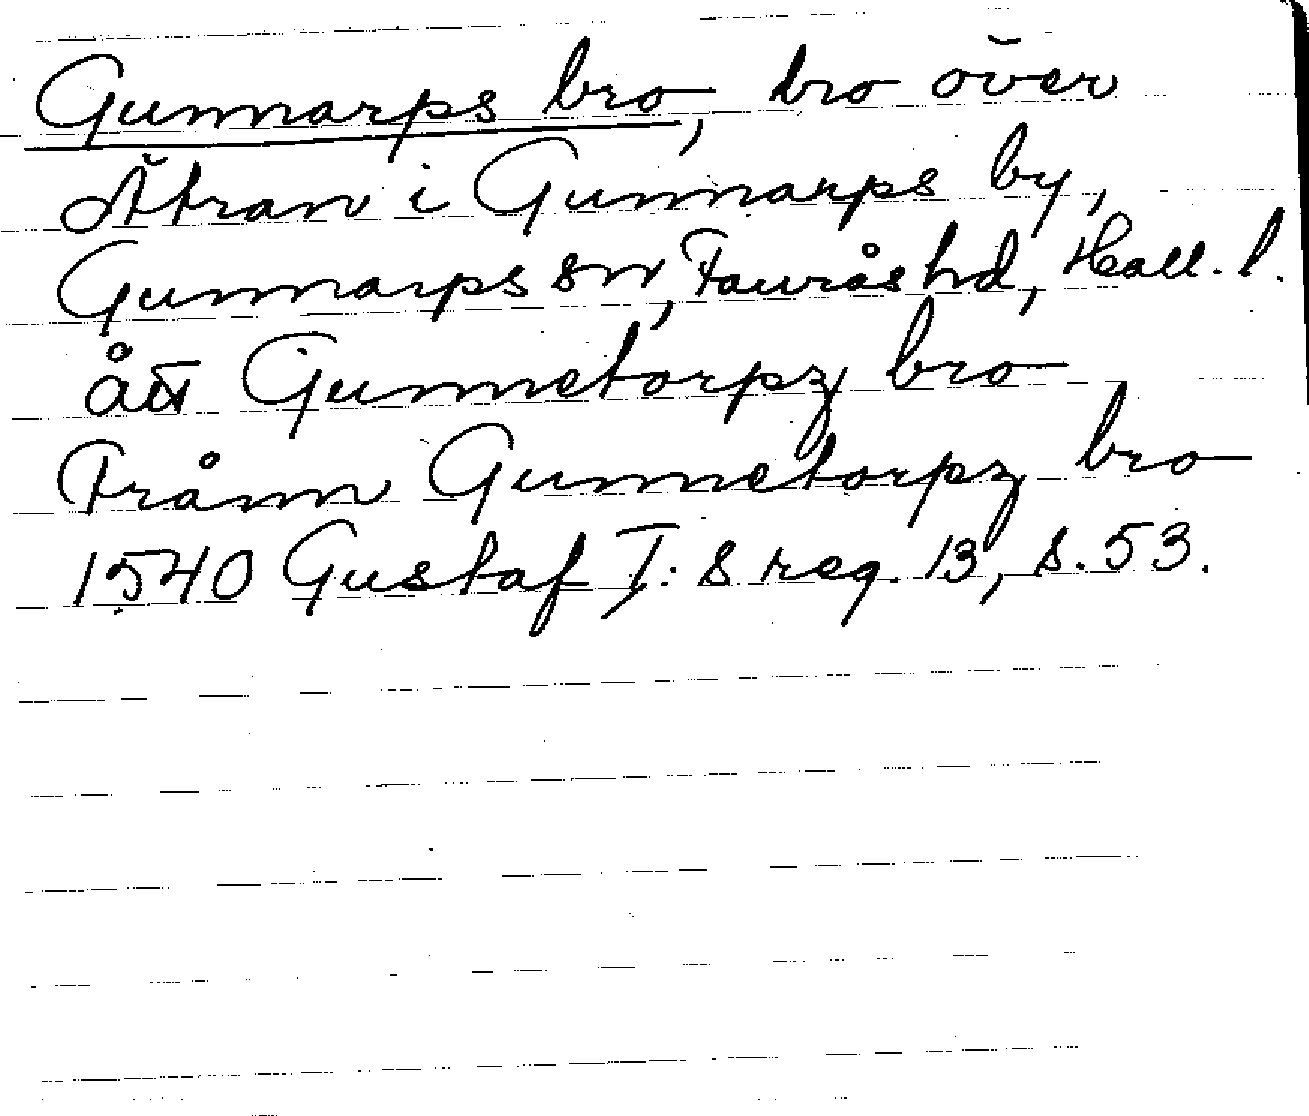 Gunnarps bro, bro över
Ätran i Gunnarps by,
Gunnarps sn, Faurås hd, Hall. l.
ått Gunnetorpz bro
Frånn Gunnetorpz bro
1540 Gustaf I: s reg. 13, s. 53.